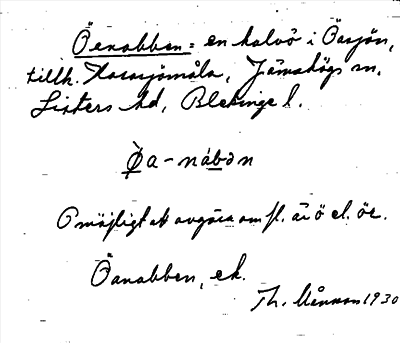 Öenabben = en halvö i Öasjön,
tillh. Harasjömåla, Jämshögs sn.
Listers hd, Blekinge l.
Öa-nábən
Omöjligt att avgöra om fl. är ö el. ör.
Öanabben, ek.
Th. 1930